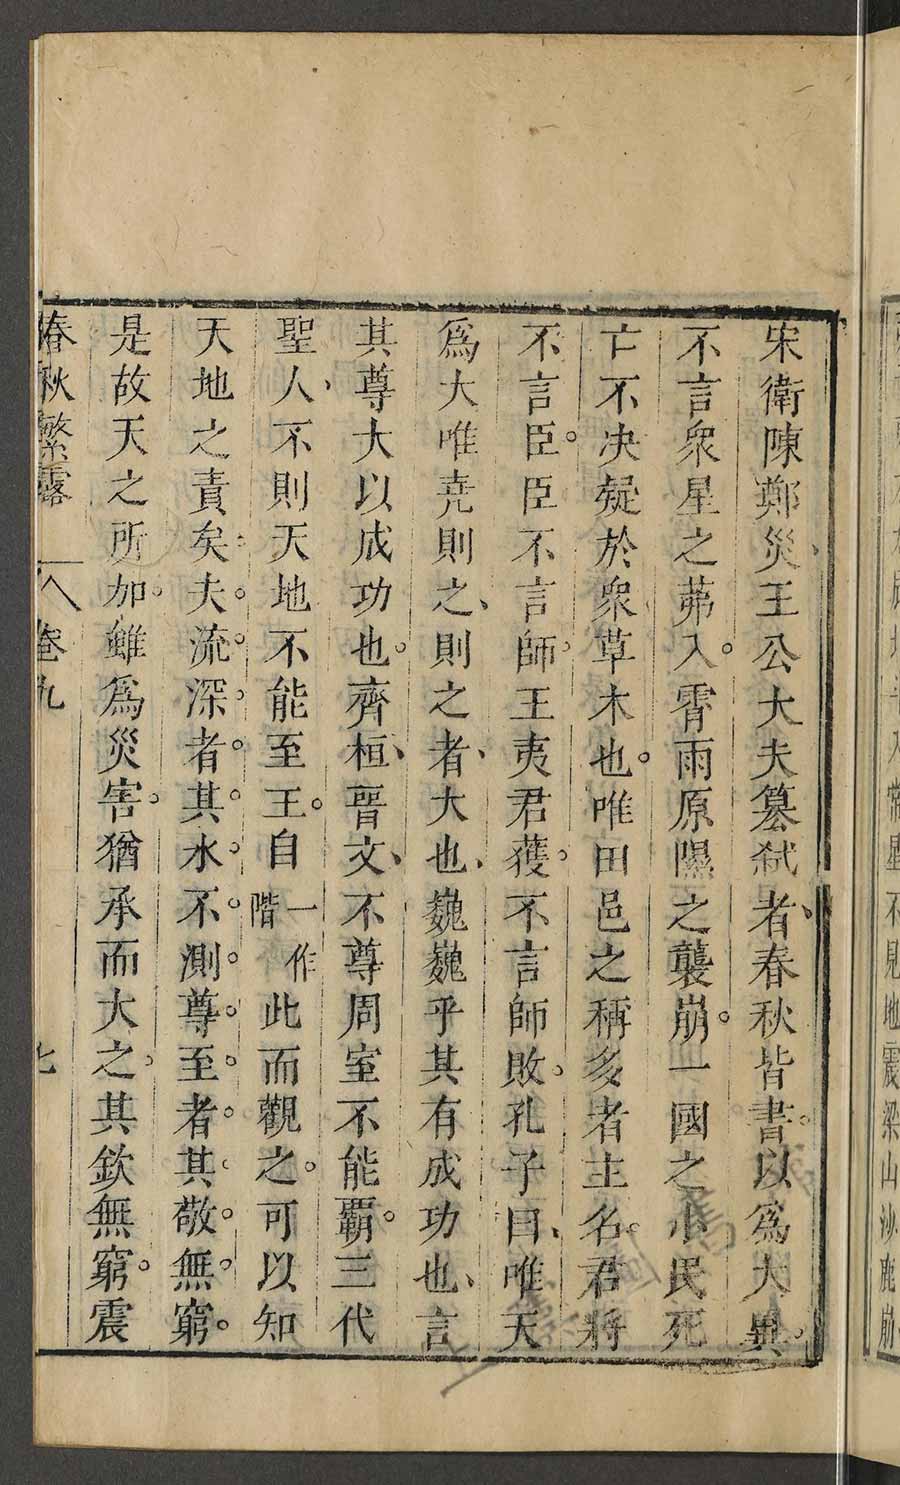 宋衛陳鄭災、王公大夫篡弑者、春秋皆書。以爲大異。
不言衆星之茀入。霣雨原隰之襲崩。一國之小民死
亡不決疑於衆草木也。唯田邑之稱多者主名。君將
不言臣。臣不言師。王夷君獲。不言師敗。孔子曰、唯天
爲大唯堯則之、則之者、大也、巍巍乎其有成功也、言
其尊大以成功也。齊桓、晉文、不尊周室不能霸。三代
聖人、不則天地不能至王。自一作階此而觀之。可以知
天地之責矣。夫。流。深。者。其。水。不。測。尊。至。者。其。敬。無。窮。
是故天之所加。雖爲災害。猶承而大之。其欽無窮。震
春秋繁露 卷九 七